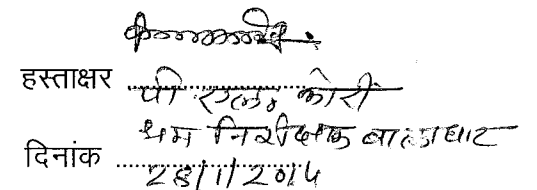 हस्ताक्षर पी एल. कोरी
श्रम निरीक्षक बालाघाट
दिनांक 28/1/2014